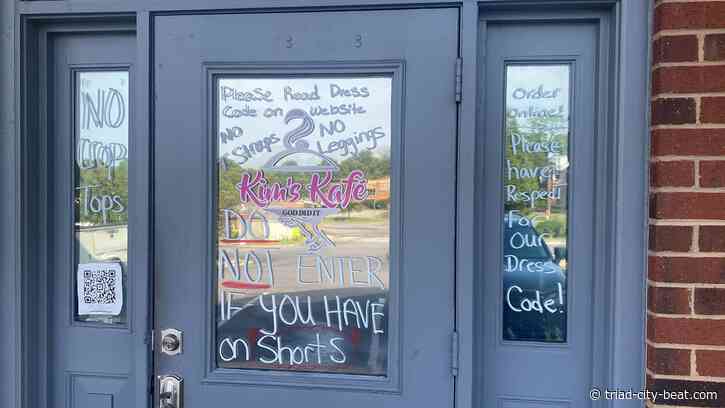 3 3
NO
CROP
TOPS
Please Read Dress
Code on Website
NO NO
Straps Leggings
Kim's Kafé
GOD DID IT
DO
NOT ENTER
IF YOU HAVE
on Shorts
Order
Online!
Please
have
Respect
For
Our
Dress
Code!
triad-city-beat.com